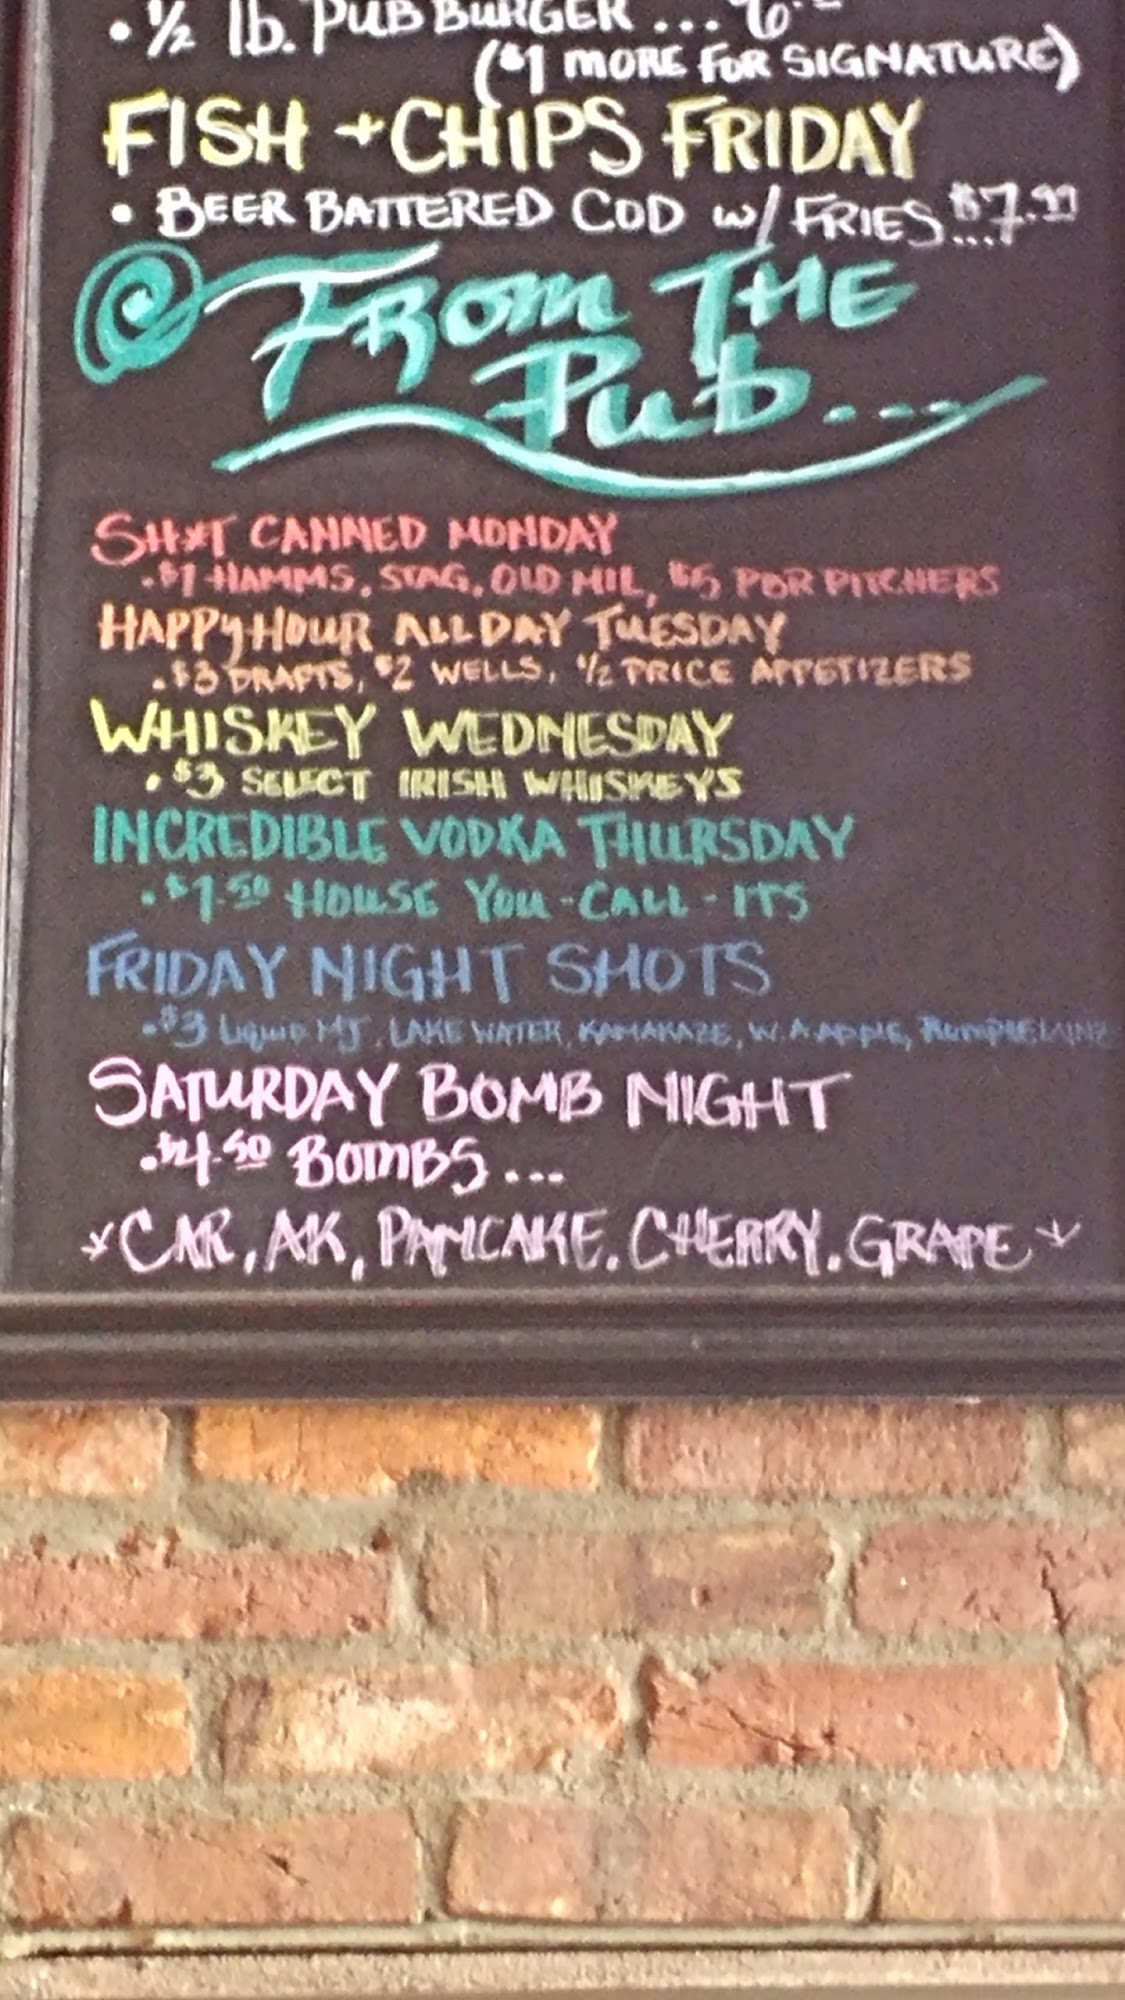 • ½ lb. PUB BURGER ... 6.
($1 MORE FOR SIGNATURE)
FISH + CHIPS FRIDAY
• BEER BATTERED COD w/ FRIES...$7.99
FROM THE
PUB...
SH*T CANNED MONDAY
• $1 HAMMS, STAG, OLD MIL, $5 PBR PITCHERS
HAPPY HOUR ALL DAY TUESDAY
• $3 DRAFTS, $2 WELLS, ½ PRICE APPETIZERS
WHISKEY WEDNESDAY
• $3 SELECT IRISH WHISKEYS
INCREDIBLE VODKA THURSDAY
• $1.50 HOUSE YOU-CALL-ITS
FRIDAY NIGHT SHOTS
• $3 LIQUID MJ, LAKE WATER, KAMAKAZE, W.A.APPLE,
SATURDAY BOMB NIGHT
• $4.50 BOMBS...
* CAR, AK, PANCAKE, CHERRY, GRAPE *